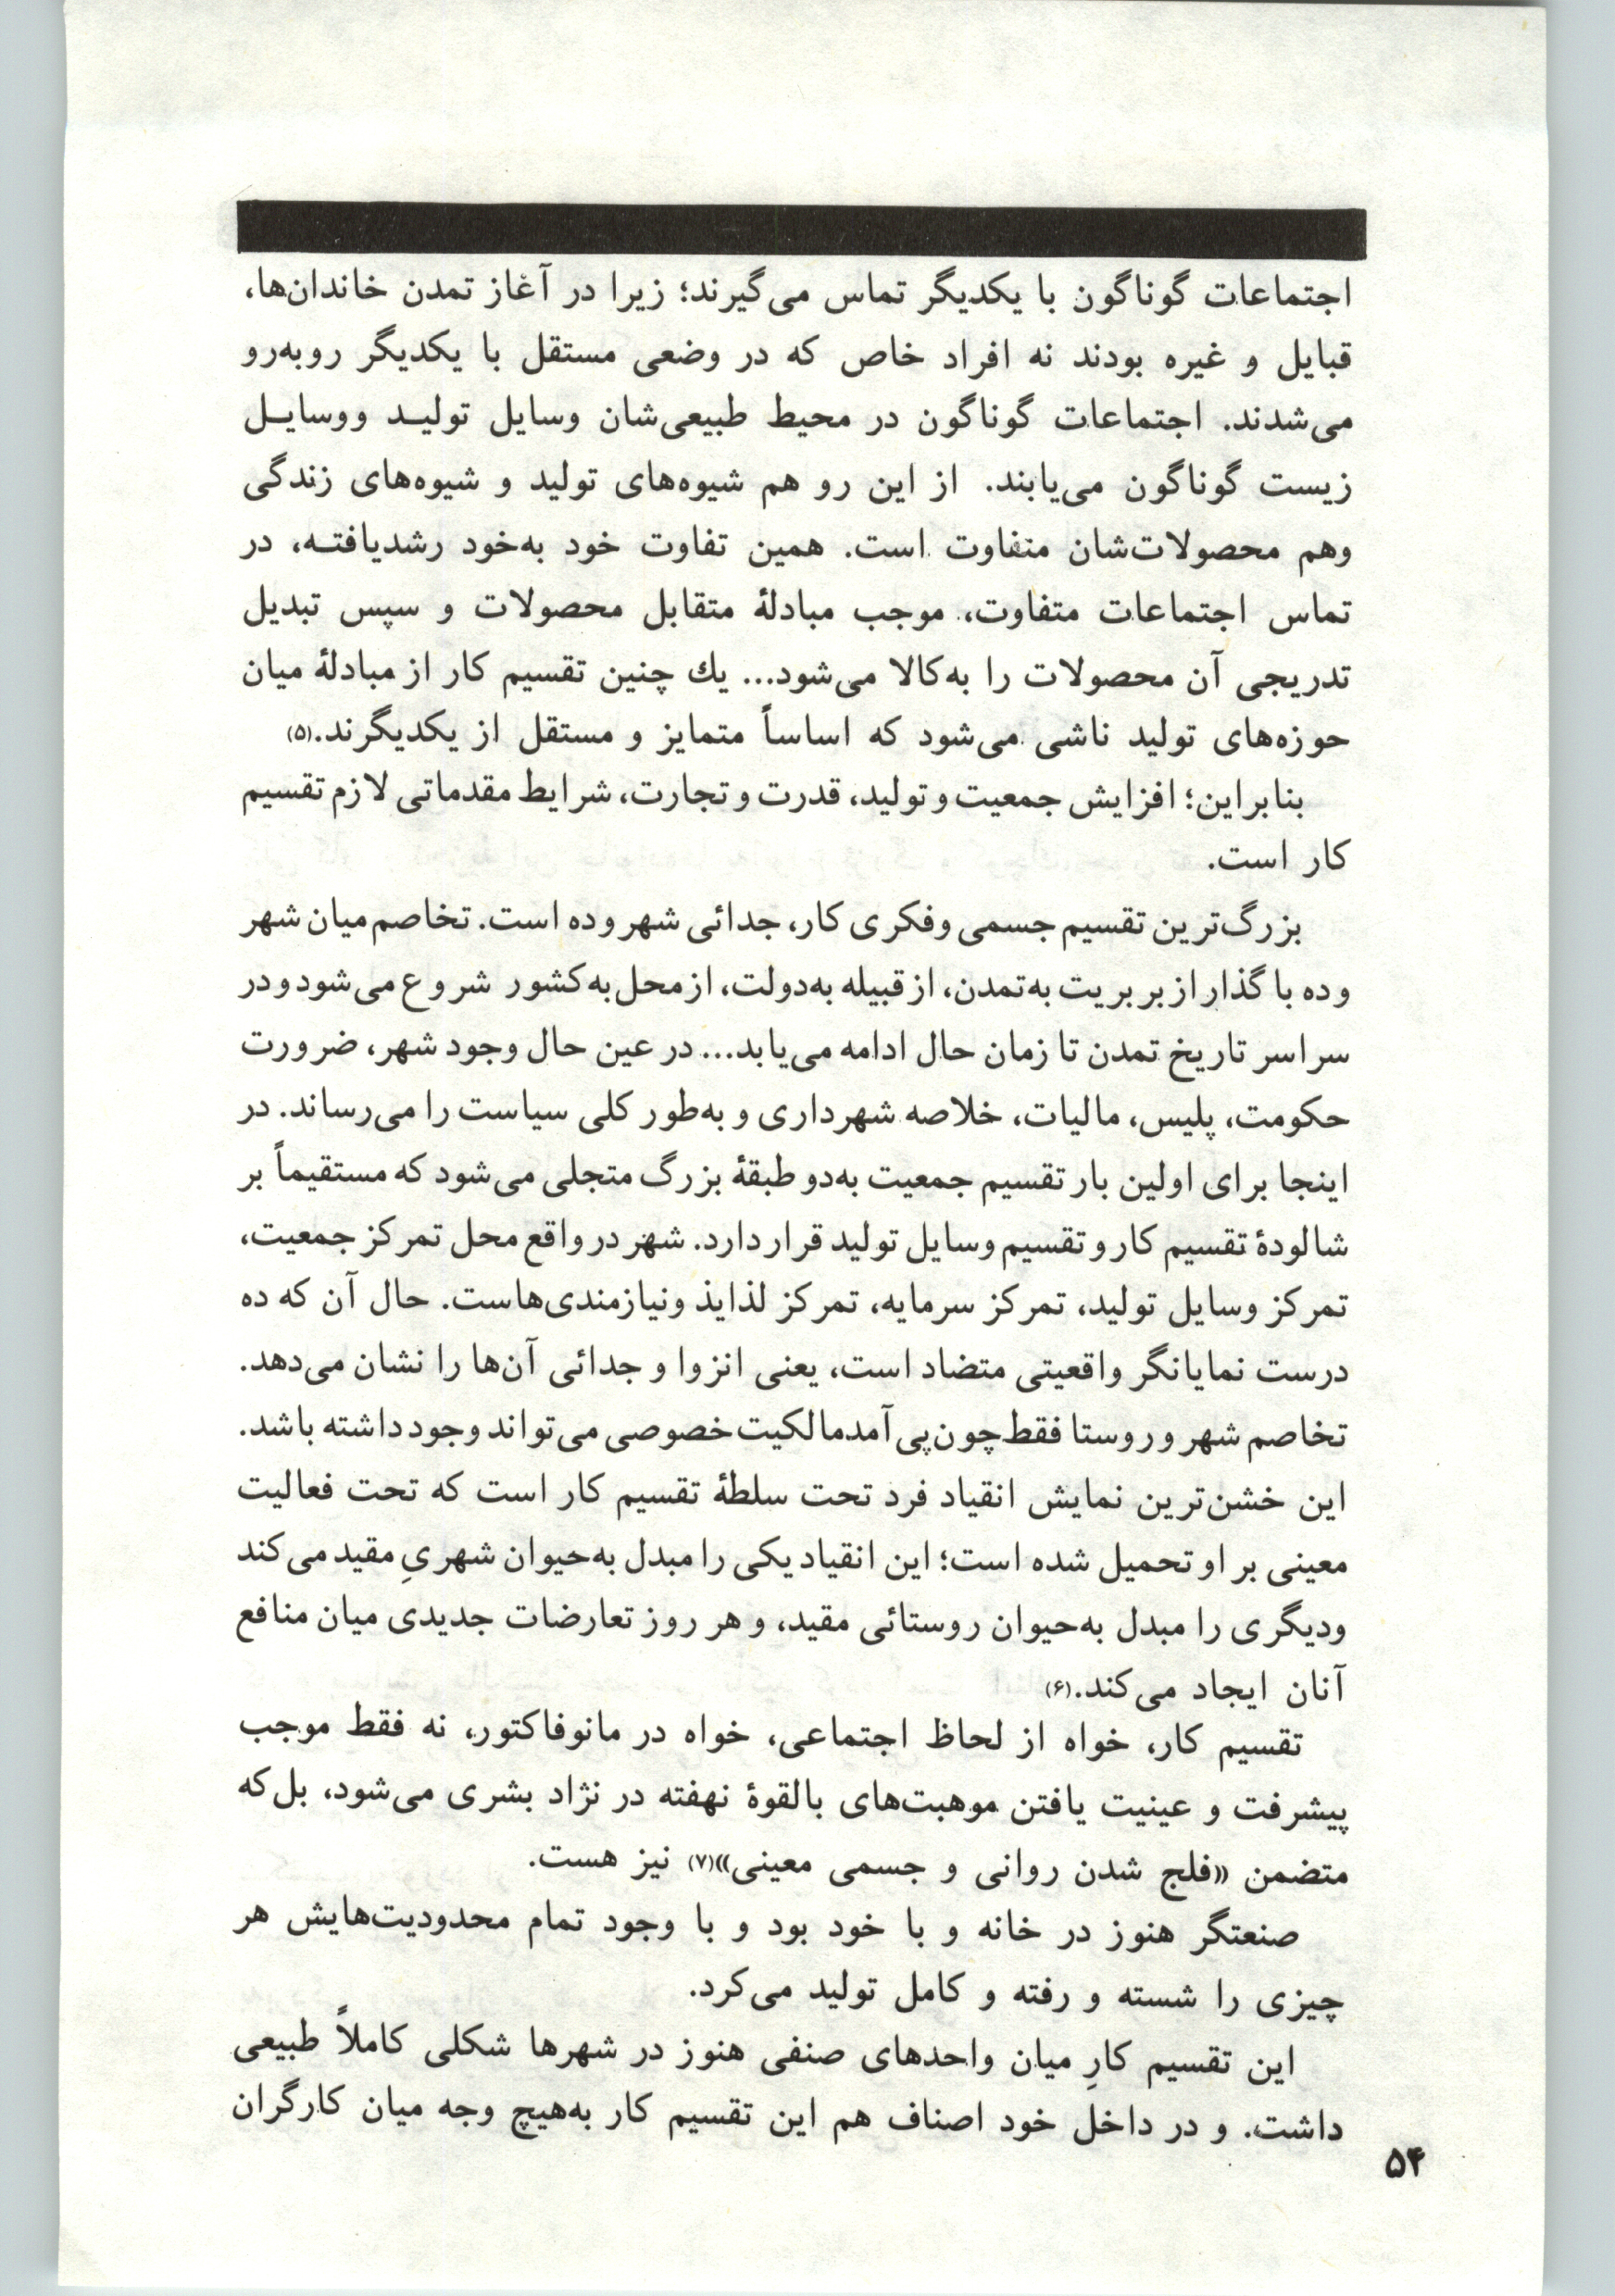 اجتماعات گوناگون با یکدیگر تماس می‌گیرند؛ زیرا در آغاز تمدن خاندان‌ها،
قبایل و غیره بودند نه افراد خاص که در وضعی مستقل با یکدیگر روبه‌رو
می‌شدند. اجتماعات گوناگون در محیط طبیعی‌شان وسایل تولید ووسایل
زیست گوناگون می‌یابند. از این رو هم شیوه‌های تولید و شیوه‌های زندگی
وهم محصولات‌شان متفاوت است. همین تفاوت خود به‌خود رشدیافته، در
تماس اجتماعات متفاوت، موجب مبادلهٔ متقابل محصولات و سپس تبدیل
تدریجی آن محصولات را به‌کالا می‌شود... یك چنین تقسیم کار از مبادلهٔ میان
حوزه‌های تولید ناشی می‌شود که اساساً متمایز و مستقل از یکدیگرند.(۵)
بنابراین؛ افزایش جمعیت و تولید، قدرت و تجارت، شرایط مقدماتی لازم تقسیم
کار است.
بزرگ‌ترین تقسیم جسمی وفکری کار، جدائی شهر وده است. تخاصم میان شهر
وده با گذار از بربریت به‌تمدن، از قبیله به‌دولت، از محل به‌کشور شروع می‌شود و در
سراسر تاریخ تمدن تا زمان حال ادامه می‌یابد... در عین حال وجود شهر، ضرورت
حکومت، پلیس، مالیات، خلاصه شهرداری و به‌طور کلی سیاست را می‌رساند. در
اینجا برای اولین بار تقسیم جمعیت به‌دو طبقهٔ بزرگ متجلی می‌شود که مستقیماً بر
شالودهٔ تقسیم کار و تقسیم وسایل تولید قرار دارد. شهر در واقع محل تمرکز جمعیت،
تمرکز وسایل تولید، تمرکز سرمایه، تمرکز لذایذ ونیازمندی‌هاست. حال آن که ده
درست نمایانگر واقعیتی متضاد است، یعنی انزوا و جدائی آن‌ها را نشان می‌دهد.
تخاصم شهر و روستا فقط چون پی‌آمد مالکیت خصوصی می‌تواند وجود داشته باشد.
این خشن‌ترین نمایش انقیاد فرد تحت سلطهٔ تقسیم کار است که تحت فعالیت
معینی بر او تحمیل شده است؛ این انقیاد یکی را مبدل به‌حیوان شهریِ مقید می‌کند
ودیگری را مبدل به‌حیوان روستائی مقید، و هر روز تعارضات جدیدی میان منافع
آنان ایجاد می‌کند.(۶)
تقسیم کار، خواه از لحاظ اجتماعی، خواه در مانوفاکتور، نه فقط موجب
پیشرفت و عینیت یافتن موهبت‌های بالقوهٔ نهفته در نژاد بشری می‌شود، بل‌که
متضمن «فلج شدن روانی و جسمی معینی»(۷) نیز هست.
صنعتگر هنوز در خانه و با خود بود و با وجود تمام محدودیت‌هایش هر
چیزی را شسته و رفته و کامل تولید می‌کرد.
این تقسیم کارِ میان واحدهای صنفی هنوز در شهرها شکلی کاملاً طبیعی
داشت. و در داخل خود اصناف هم این تقسیم کار به‌هیچ وجه میان کارگران
۵۴